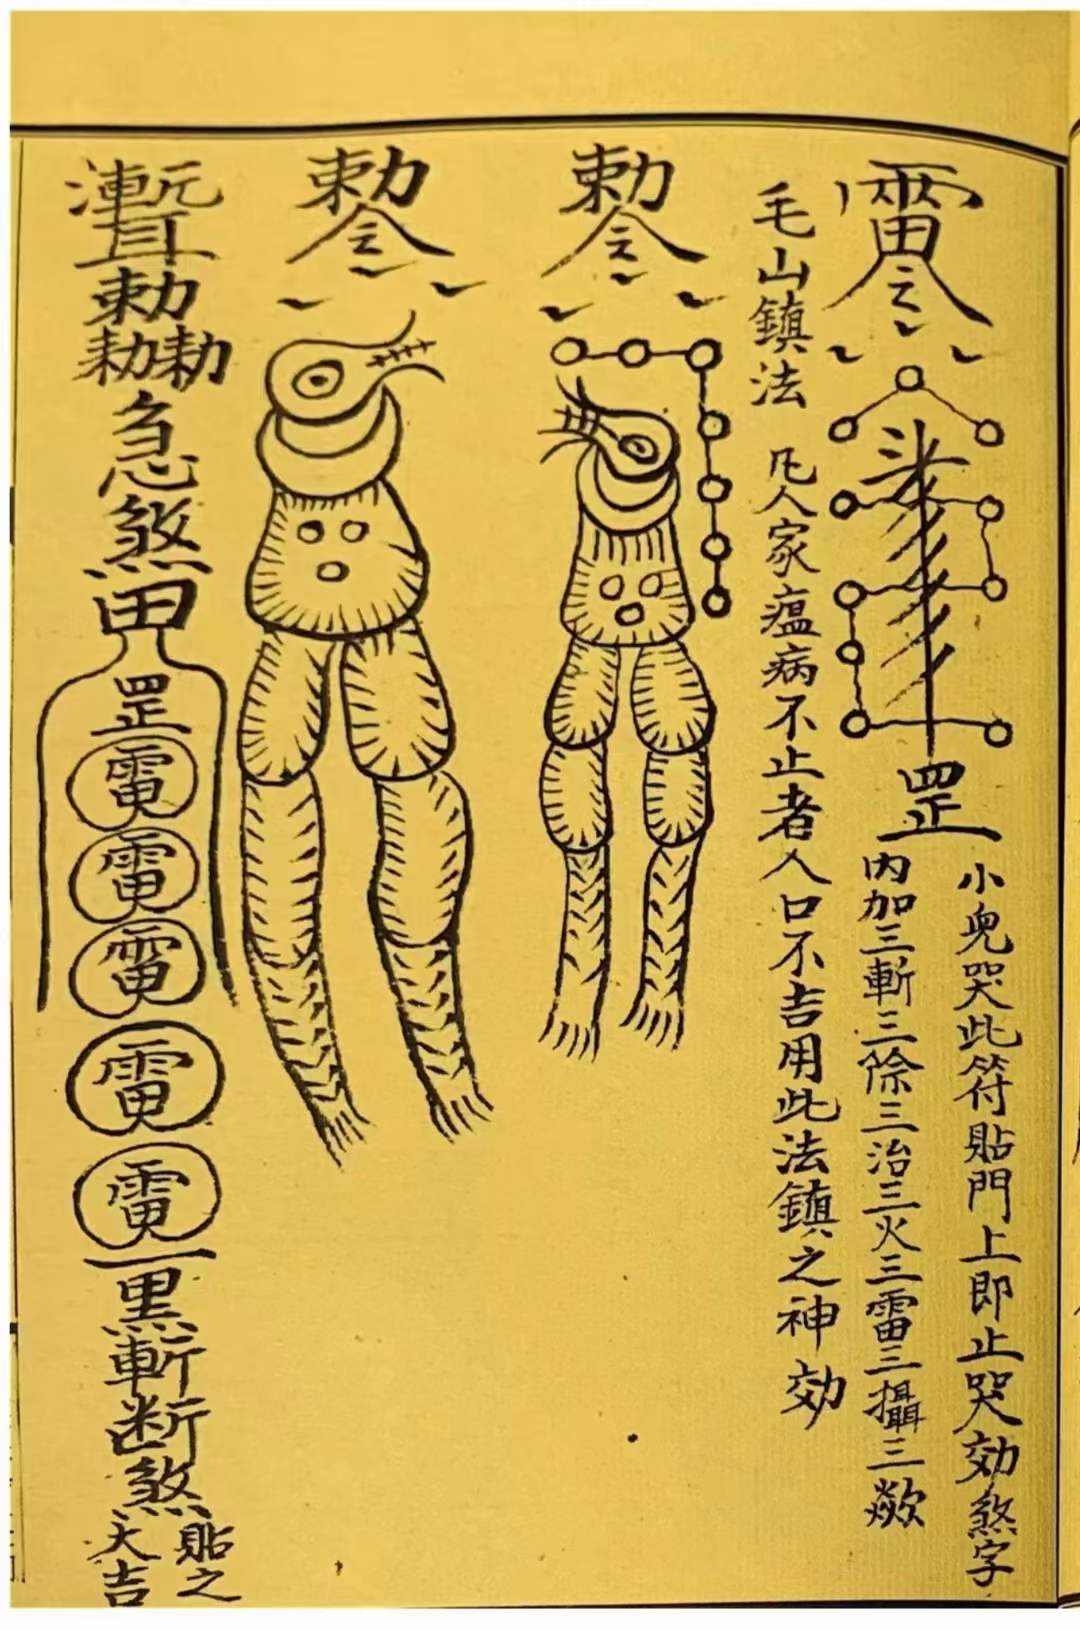 雷令
罡
小兒哭此符貼門上即止哭効煞字
內加三斬三除三治三火三雷三攝三焱欠
毛山鎮法
凡人家瘟病不止者人口不吉用此法鎮之神効
勅令
勅令
勅
勅勅
急煞
田
罡
電
電
電
電
電
一黑斬断煞
貼之
大吉